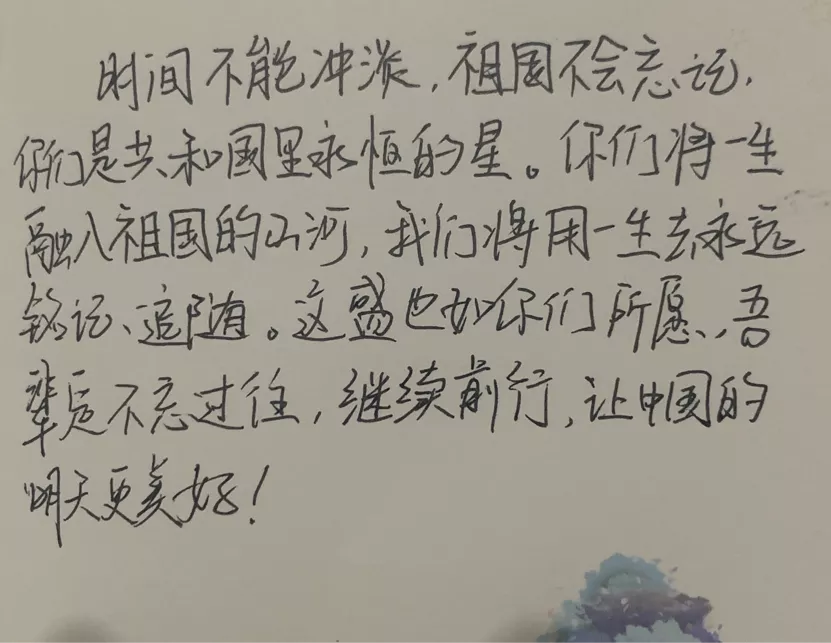 时间不能冲淡，祖国不会忘记，
你们是共和国里永恒的星。你们将一生
融入祖国的山河，我们将用一生去永远
铭记、追随。这盛世如你们所愿，吾
辈定不忘过往，继续前行，让中国的
明天更美好！